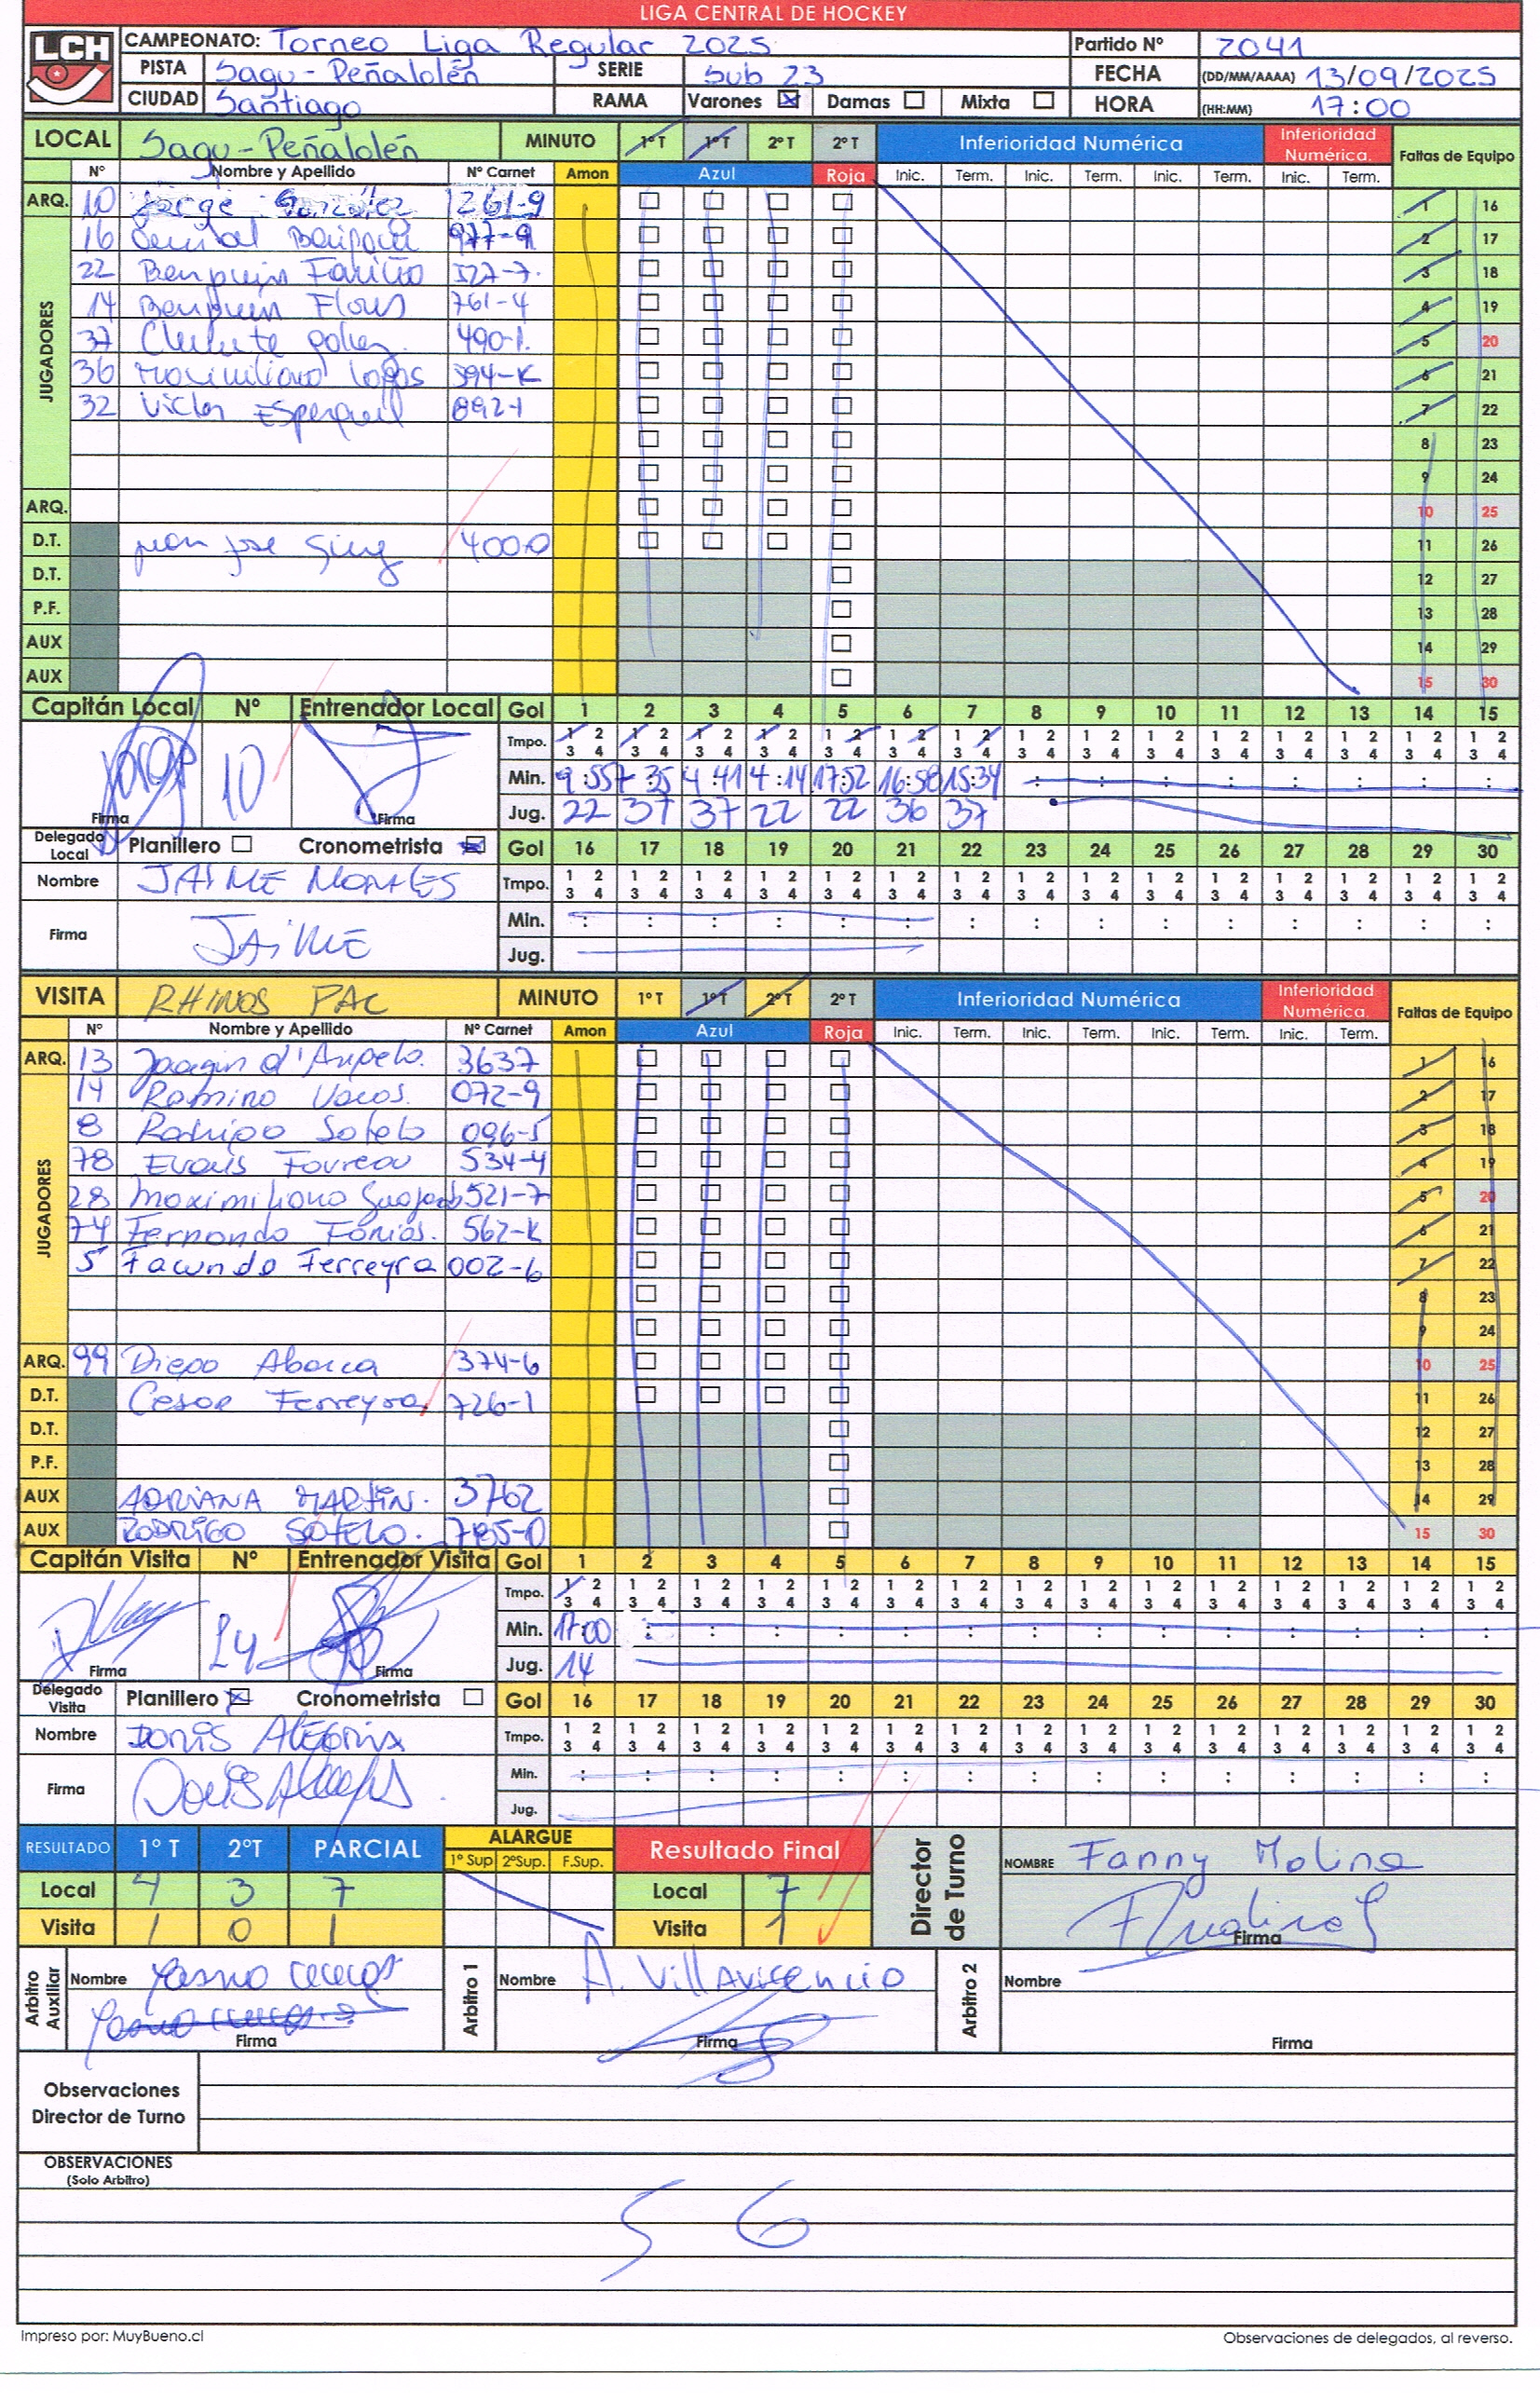 LIGA CENTRAL DE HOCKEY
LCH
CAMPEONATO: Torneo Liga Regular 2025 Partido Nº 2041
PISTA Sagu - Peñalolén SERIE Sub 23 FECHA (DD/MM/AAAA) 13/09/2025
CIUDAD Santiago RAMA Varones Damas Mixta HORA (HH:MM) 17:00
LOCAL Sagu - Peñalolén MINUTO 1º T 1º T 2º T 2º T Inferioridad Numérica Inferioridad Numérica. Faltas de Equipo
Nº Nombre y Apellido Nº Carnet Amon Azul Roja Inic. Term. Inic. Term. Inic. Term. Inic. Term.
ARQ. 10 Jorge González 1261-9 1 16
JUGADORES
16 977-9 2 17
22 Benjamín Fariña 327-7 3 18
14 Benjamín Flores 761-4 4 19
37 Clemente 490-1 5 20
36 Maximiliano Lagos 394-K 6 21
32 Victor 892-1 7 22
8 23
9 24
ARQ. 10 25
D.T. Juan Jose 400-0 11 26
D.T. 12 27
P.F. 13 28
AUX 14 29
AUX 15 30
Capitán Local Nº Entrenador Local Gol 1 2 3 4 5 6 7 8 9 10 11 12 13 14 15
Tmpo. 1 2 1 2 1 2 1 2 1 2 1 2 1 2 1 2 1 2 1 2 1 2 1 2 1 2 1 2 1 2
3 4 3 4 3 4 3 4 3 4 3 4 3 4 3 4 3 4 3 4 3 4 3 4 3 4 3 4 3 4
Jorge 10 Min. 9:55 7:35 4:41 4:14 17:52 16:58 15:34 : : : : : : : :
Firma Firma Jug. 22 37 37 22 22 36 37
Delegado Local Planillero Cronometrista Gol 16 17 18 19 20 21 22 23 24 25 26 27 28 29 30
Nombre JAIME MORALES Tmpo. 1 2 1 2 1 2 1 2 1 2 1 2 1 2 1 2 1 2 1 2 1 2 1 2 1 2 1 2 1 2
3 4 3 4 3 4 3 4 3 4 3 4 3 4 3 4 3 4 3 4 3 4 3 4 3 4 3 4 3 4
Min. : : : : : : : : : : : : : : :
Firma JAIME Jug.
VISITA RHINOS PAC MINUTO 1º T 1º T 2º T 2º T Inferioridad Numérica Inferioridad Numérica. Faltas de Equipo
Nº Nombre y Apellido Nº Carnet Amon Azul Roja Inic. Term. Inic. Term. Inic. Term. Inic. Term.
ARQ. 13 Joaquin d'Angelo. 3637 1 16
JUGADORES
14 Ramiro Vacas. 072-9 2 17
8 Rodrigo Sotelo 096-5 3 18
78 Evans Fourcau 534-4 4 19
28 Maximiliano 521-7 5 20
74 Fernando Farias. 562-K 6 21
5 Facundo Ferreyra 002-6 7 22
8 23
9 24
ARQ. 99 Diego Abarca 374-6 10 25
D.T. Cesar Ferreyra 726-1 11 26
D.T. 12 27
P.F. 13 28
AUX ADRIANA MARTIN. 3762 14 29
AUX RODRIGO SOTELO. 785-0 15 30
Capitán Visita Nº Entrenador Visita Gol 1 2 3 4 5 6 7 8 9 10 11 12 13 14 15
Tmpo. 1 2 1 2 1 2 1 2 1 2 1 2 1 2 1 2 1 2 1 2 1 2 1 2 1 2 1 2 1 2
3 4 3 4 3 4 3 4 3 4 3 4 3 4 3 4 3 4 3 4 3 4 3 4 3 4 3 4 3 4
14 Min. 17:00 : : : : : : : : : : : : : :
Firma Firma Jug. 14
Delegado Visita Planillero Cronometrista Gol 16 17 18 19 20 21 22 23 24 25 26 27 28 29 30
Nombre DORIS ALEGRIA Tmpo. 1 2 1 2 1 2 1 2 1 2 1 2 1 2 1 2 1 2 1 2 1 2 1 2 1 2 1 2 1 2
3 4 3 4 3 4 3 4 3 4 3 4 3 4 3 4 3 4 3 4 3 4 3 4 3 4 3 4 3 4
Min. : : : : : : : : : : : : : : :
Firma Jug.
RESULTADO 1º T 2ºT PARCIAL ALARGUE Resultado Final Director de Turno NOMBRE Fanny Molina
1º Sup 2ºSup. F.Sup.
Local 4 3 7 Local 7
Visita 1 0 1 Visita 1 Firma
Arbitro Auxiliar Nombre Arbitro 1 Nombre A. Villavicencio Arbitro 2 Nombre
Firma Firma Firma
Observaciones
Director de Turno
OBSERVACIONES
(Solo Arbitro)
5 6
Impreso por: MuyBueno.cl Observaciones de delegados, al reverso.